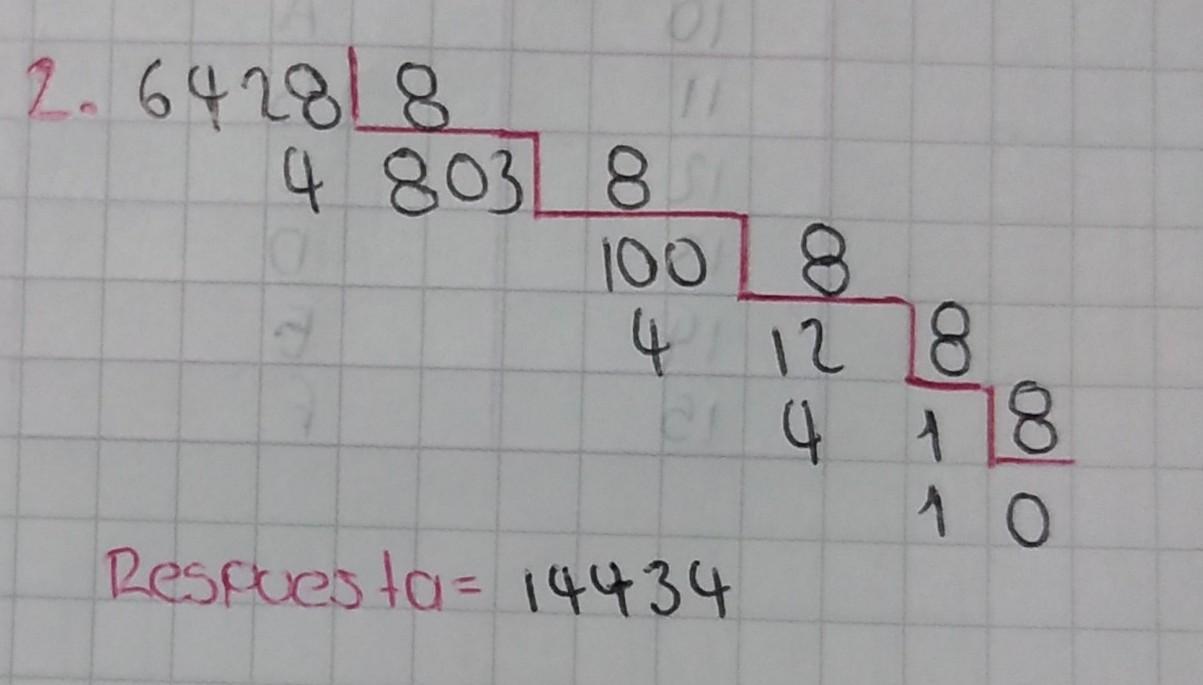 2. 6428 8
4 803 8
100 8
4 12 8
4 1 8
1 0
Respuesta= 14434